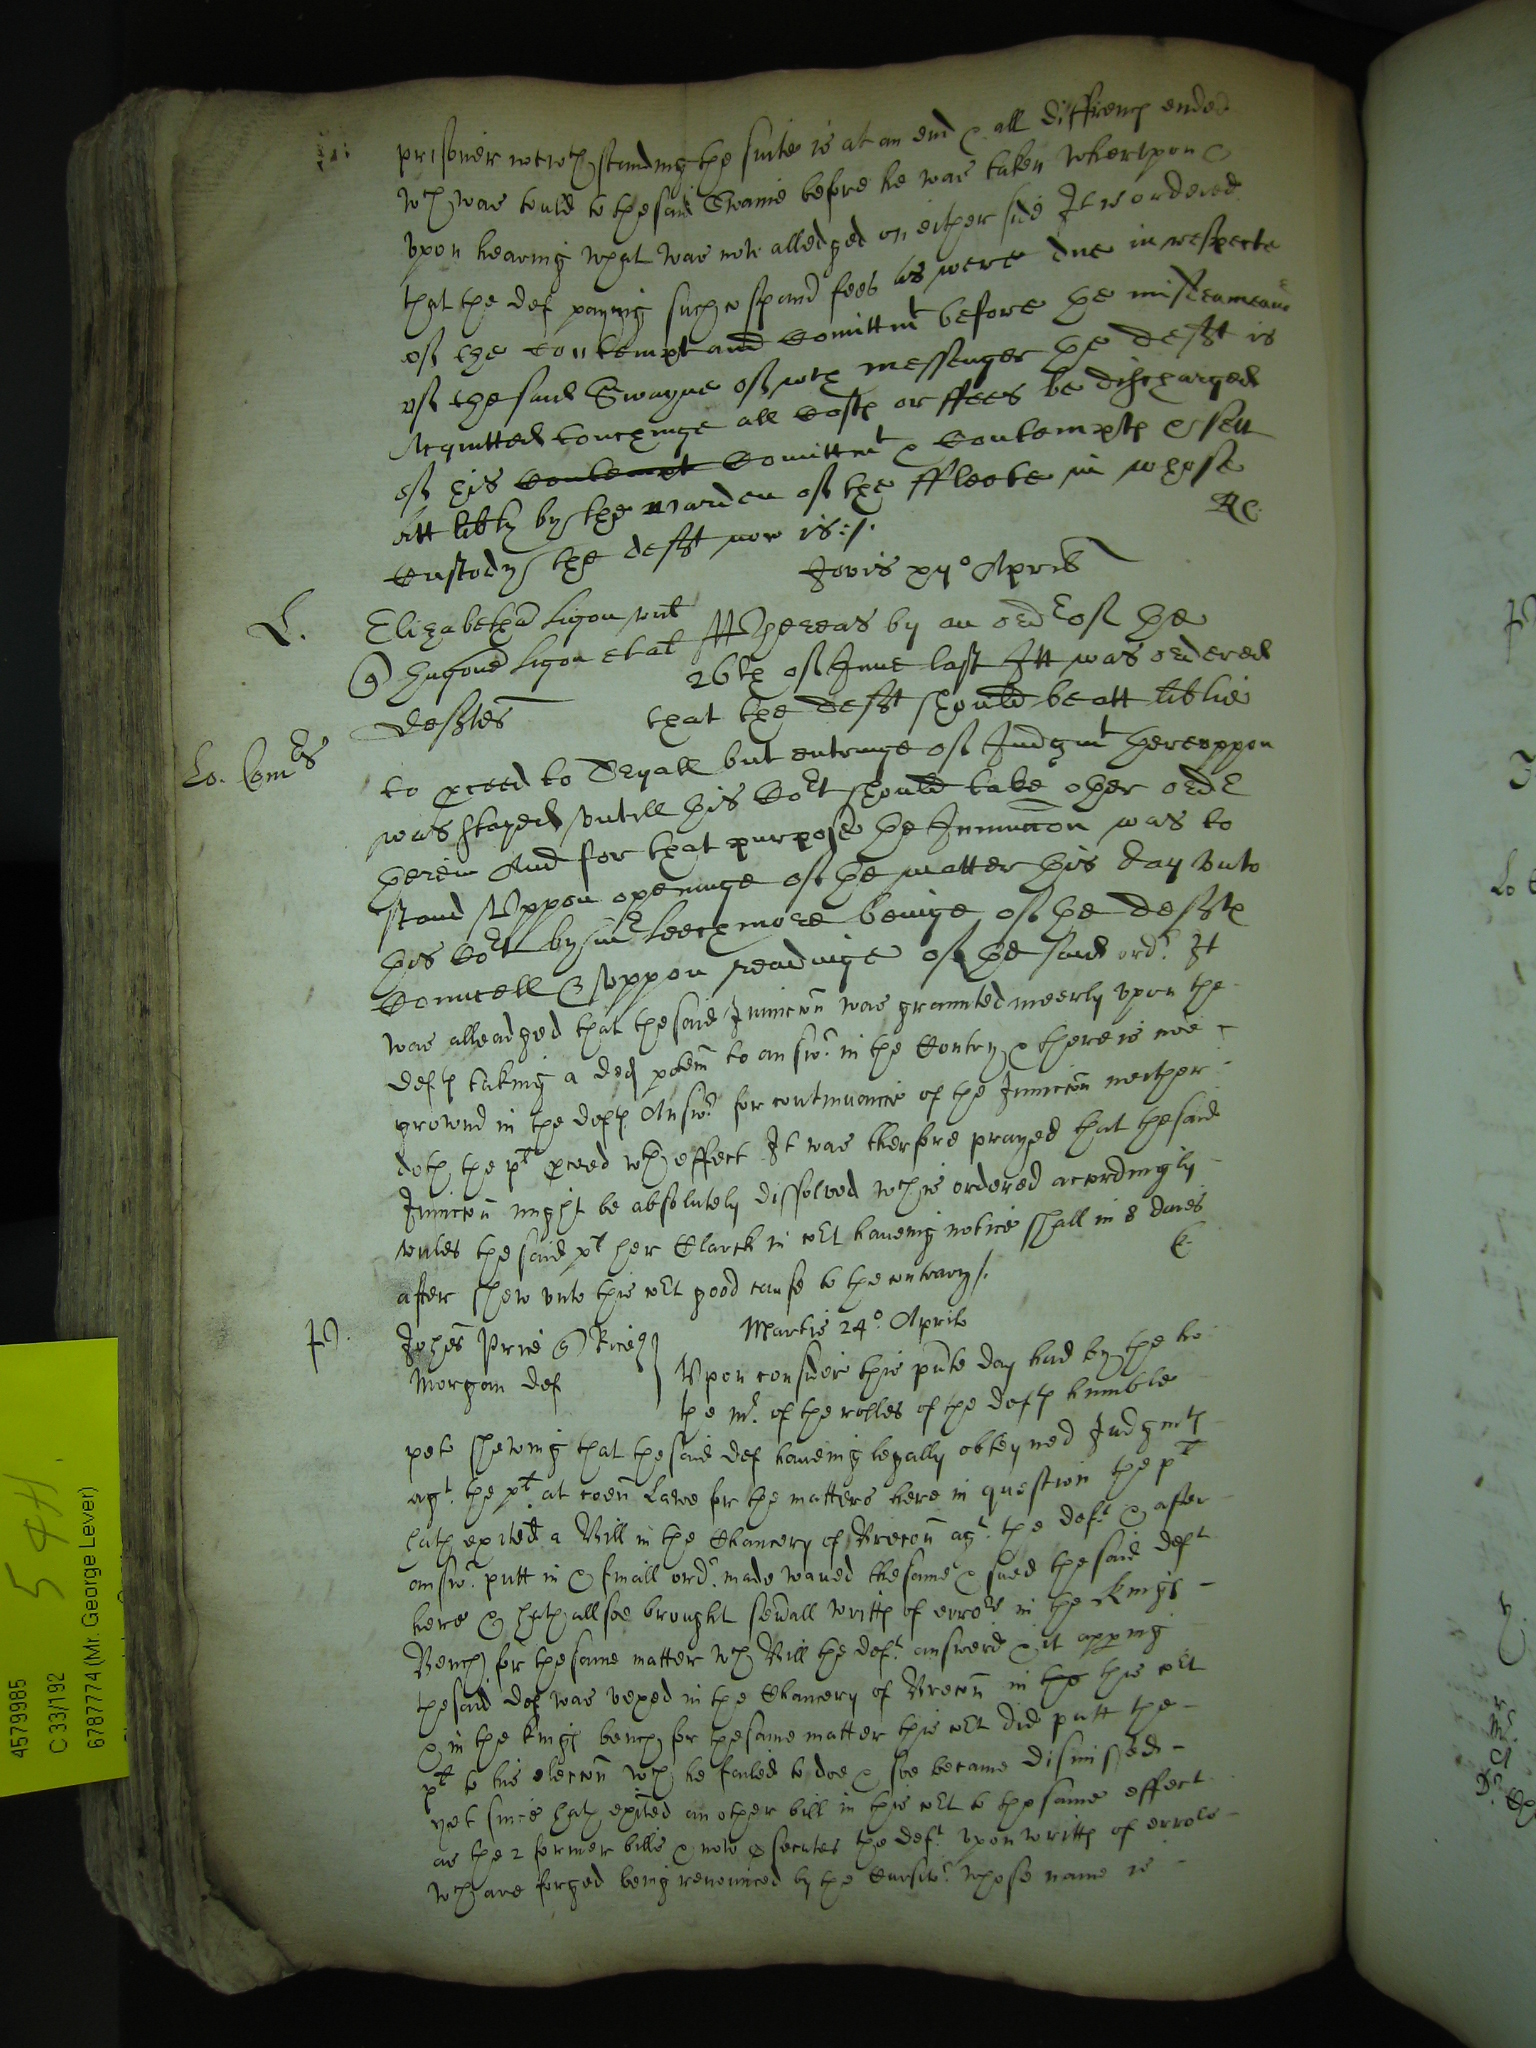 prisoner notwth standing the suite is at an end & all differenc ended
wch was tould to the said Swaine before he was taken wherupon &
upon hearing what was now alledged on either side It is ordered
that the def paying such costs and fees as were due in respecte
of the contempt and Comittmt before the misdemeanr
of the said Swayne of wch messenger the defft is
Acquitted touchinge all Costs or ffees be discharged
of his contempt Comittmt & Contempts & sett
att libty by the warden of the ffleete in whose
Custody the defft now is :/.
Jovis Aprilis
L.
Elizabetha Ligon vid
Hugone Ligon et al
deftes
Lo. Comrs
Whereas by an ordr of the
26th of June last Itt was ordered
that the defft should be att libtie
to pceed to Tryall but entringe of Judgmt thereuppon
was stayed untill this Cort should take other ordr
therein And for that purpose the Iniunccon was to
stand Uppon openinge of the matter this day unto
this Cort by mr Leechmore beinge of the deffts
Councell & uppon readinge of the said ordr It
was alleadged that the said Iniunccon was graunted meerly upon the
defts taking a ded potem to answr in the Contry & there is noe
grownd in the defts Answr for continuance of the Iniunccon neither
doth the plt pceed wth effect It was therfore prayed that the said
Iniunccon might be absolutely dissolved wch is ordered accordingly
unles the said plt her Clarck in Cort haveing notice shall in 8 daies
after shew unto this Cort good cause to the contrary /.
Martis 24o Aprilis
Johes Price Rice
Morgan def
Upon consider this pnte day had by the ho:
the Mr of the rolles of the defts humble
peto shewing that the said def haveing legally obteyned Judgmts
agt the plt at coen Lawe for the matters here in question the plt
hath exited a Bill in the Chancery of Brecon agt the deft & after
answr putt in & finall ordr made waved the same & sued the said deft
here & hath allsoe brought severall writts of errors in the Kings
Bench for the same matter wch Bill the deft answerd & it apping
the said def was vexed in the Chancery of Brecon in the this Cort
& in the Kings bench for the same matter this Cort did putt the
plt to his eleccon wch he failed to doe & soe became dismissed
yet since hath exited an other bill in this Cort to the same effect
as the 2 former bills & now psecutes the deft upon writts of errors
wch are forged being renounced by the Cursitr whose name is
4579985
C 33/192
6787774 (Mr. George Lever)